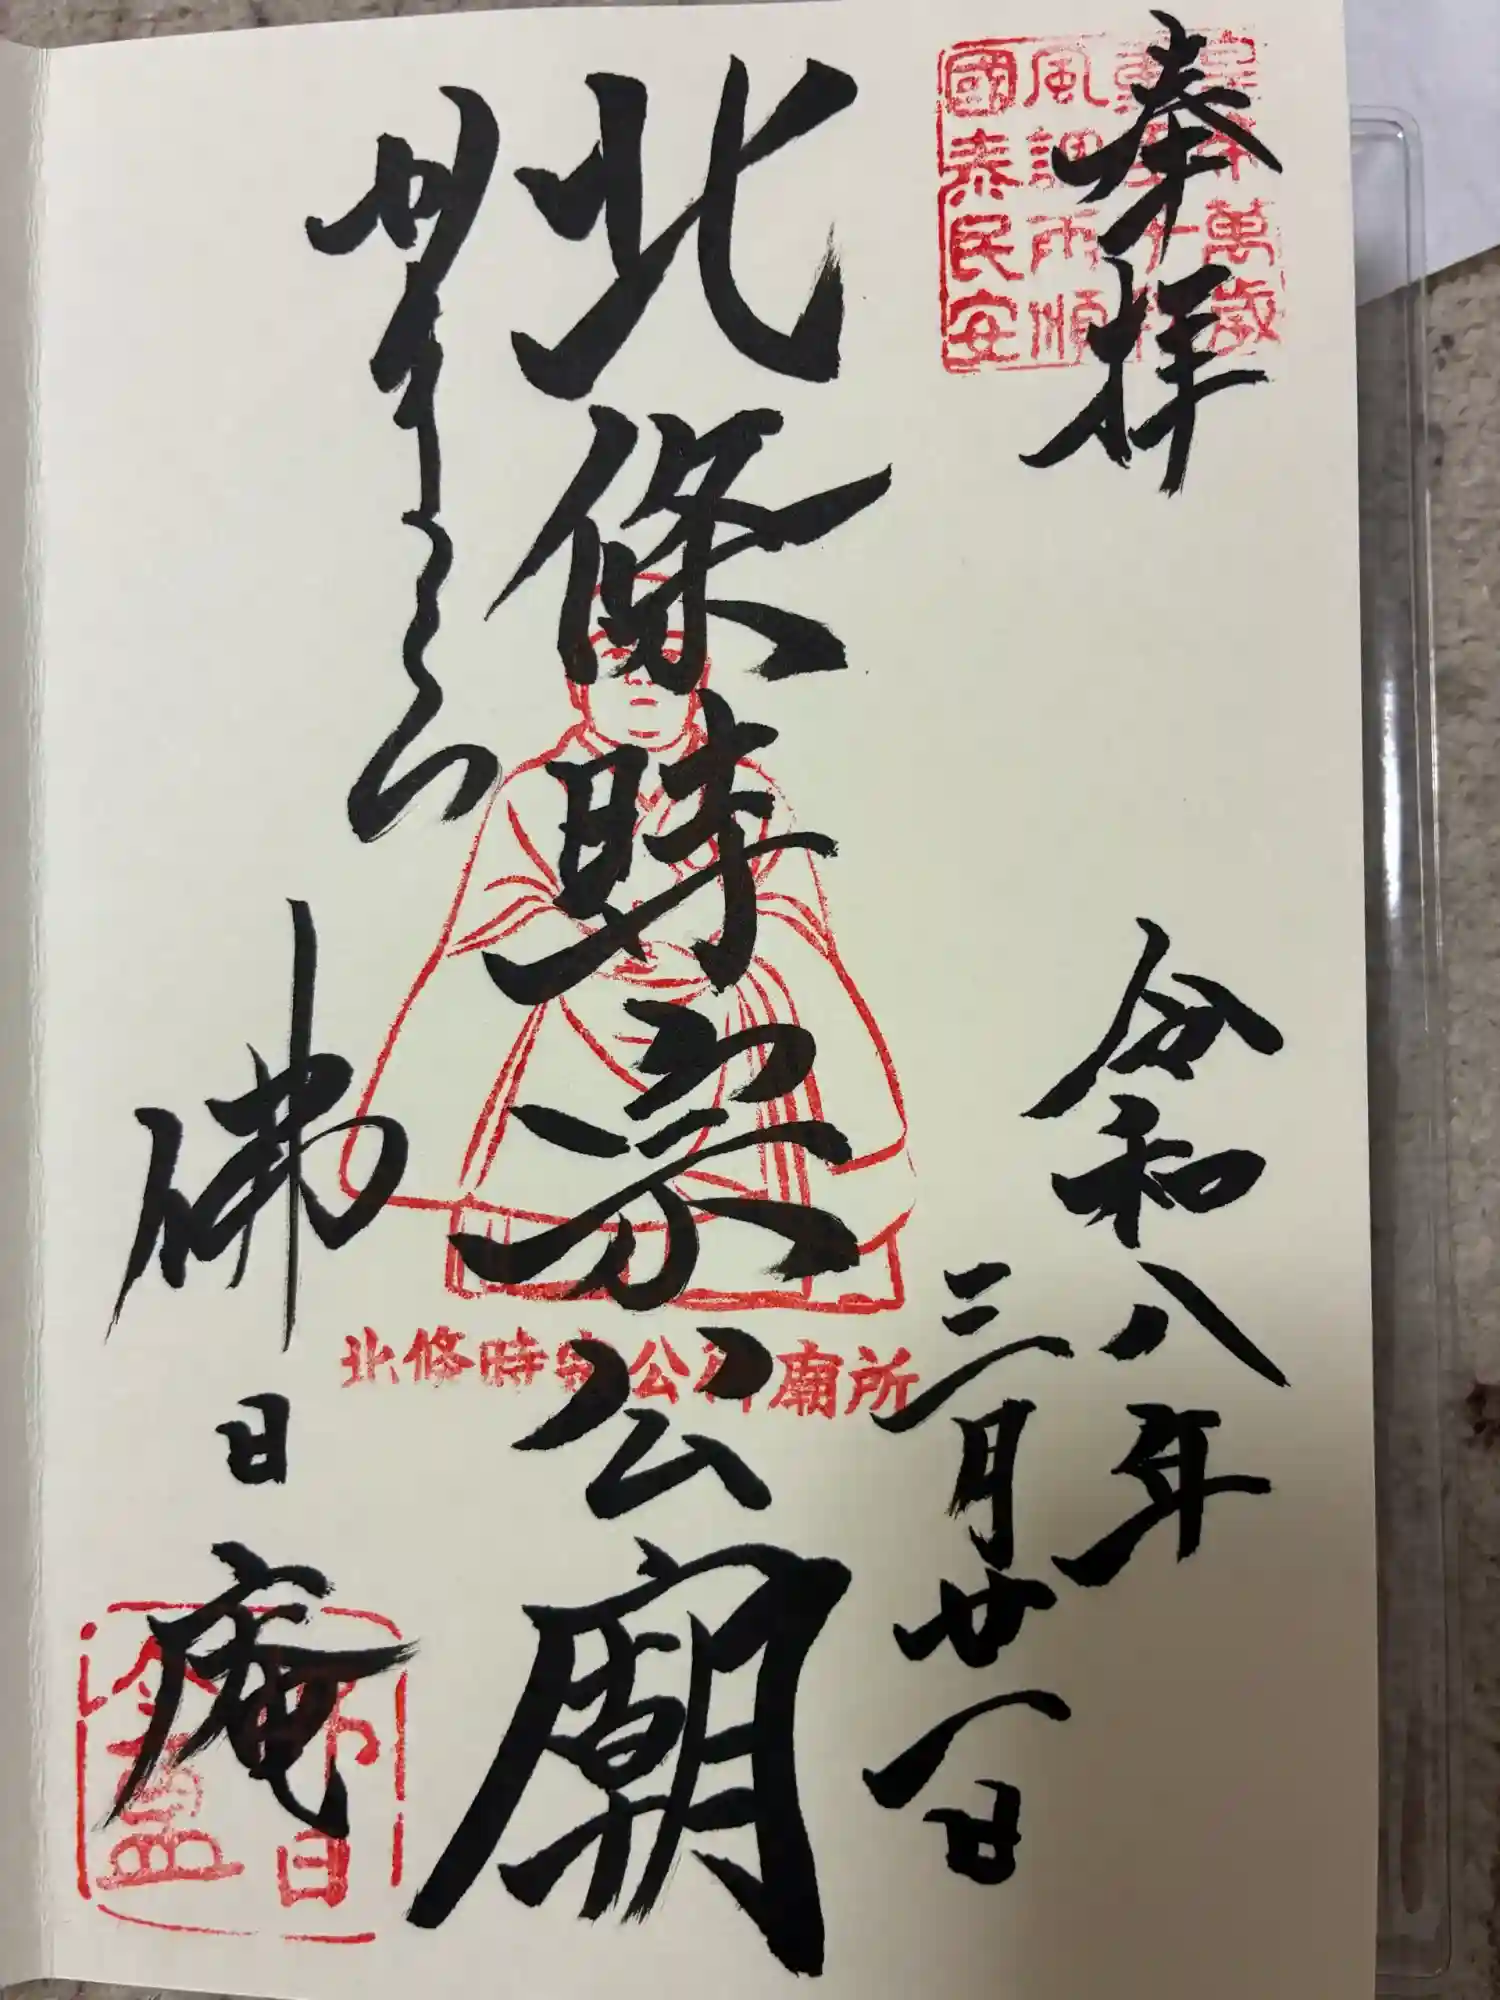 奉拝
令和八年
三月廿一日
北條時宗公廟
かまくら
佛日庵
萬歳
風調雨順
國泰民安
北條時宗公御廟所